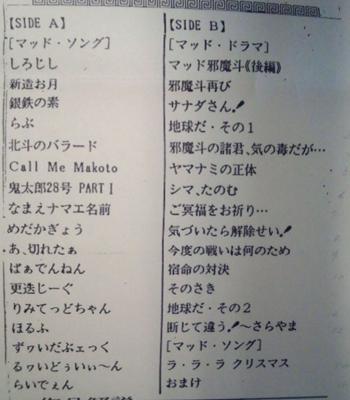 【SIDE A】
[マッド・ソング]
しろじし
新造お月
銀鉄の素
らぶ
北斗のバラード
Call Me Makoto
鬼太郎28号 PART I
なまえナマエ名前
めだかぎょう
あ、切れたぁ
ばぁでんねん
更迭じーぐ
りみてっどちゃん
ほるふ
ずわいだぶぇっく
るゎいどぅいい〜ん
らいでぇん
【SIDE B】
[マッド・ドラマ]
マッド邪魔斗《後編》
邪魔斗再び
サナダさん!
地球だ・その1
邪魔斗の諸君、気の毒だが…
ヤマナミの正体
シマ、たのむ
ご冥福をお祈り…
気づいたら解除せい!
今度の戦いは何のため
宿命の対決
そのさき
地球だ・その2
断じて違う!〜さらやま
[マッド・ソング]
ラ・ラ・ラ クリスマス
おまけ